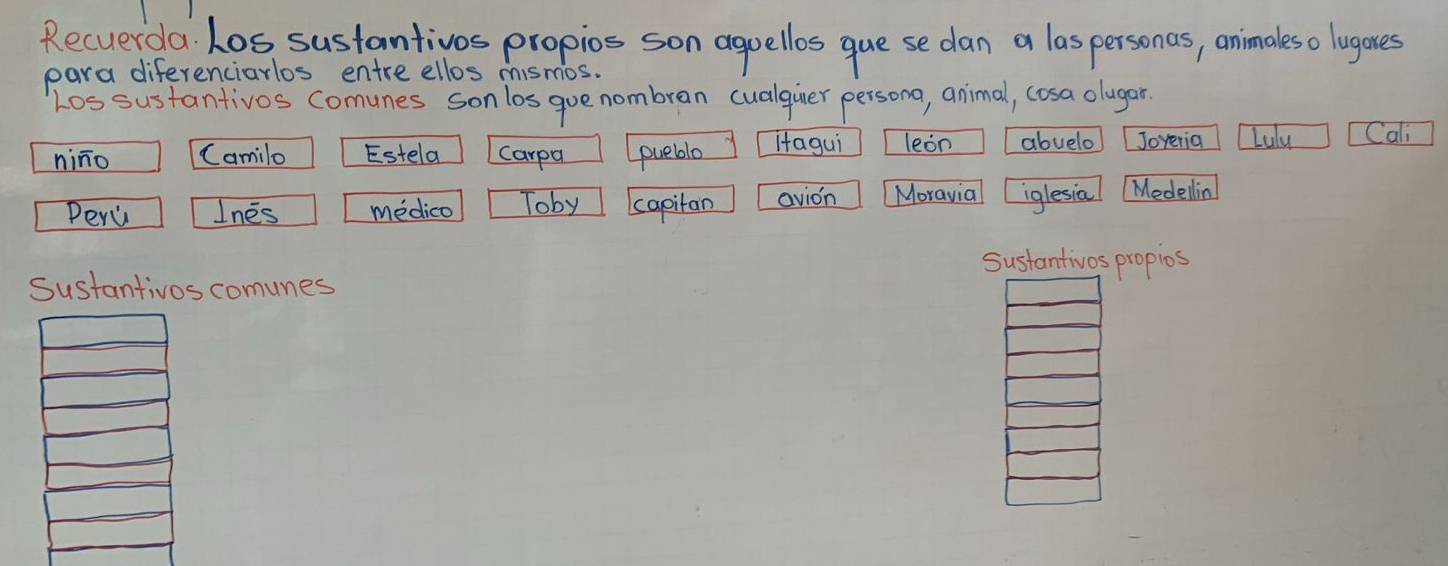 Recuerda. Los sustantivos propios son aquellos que se dan a las personas, animales o lugares
para diferenciarlos entre ellos mismos.
Los sustantivos comunes son los que nombran cualquier persona, animal, cosa o lugar.
niño Camilo Estela carpa pueblo itagui león abuelo Joyeria Lulu Cali
Perú Inés médico Toby capitan avión Moravia iglesia Medellin
Sustantivos propios
Sustantivos comunes